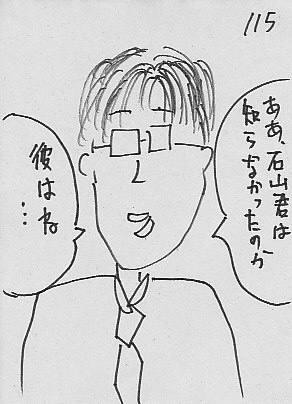 115
ああ、石山君は
知らなかったのか
彼はね
…